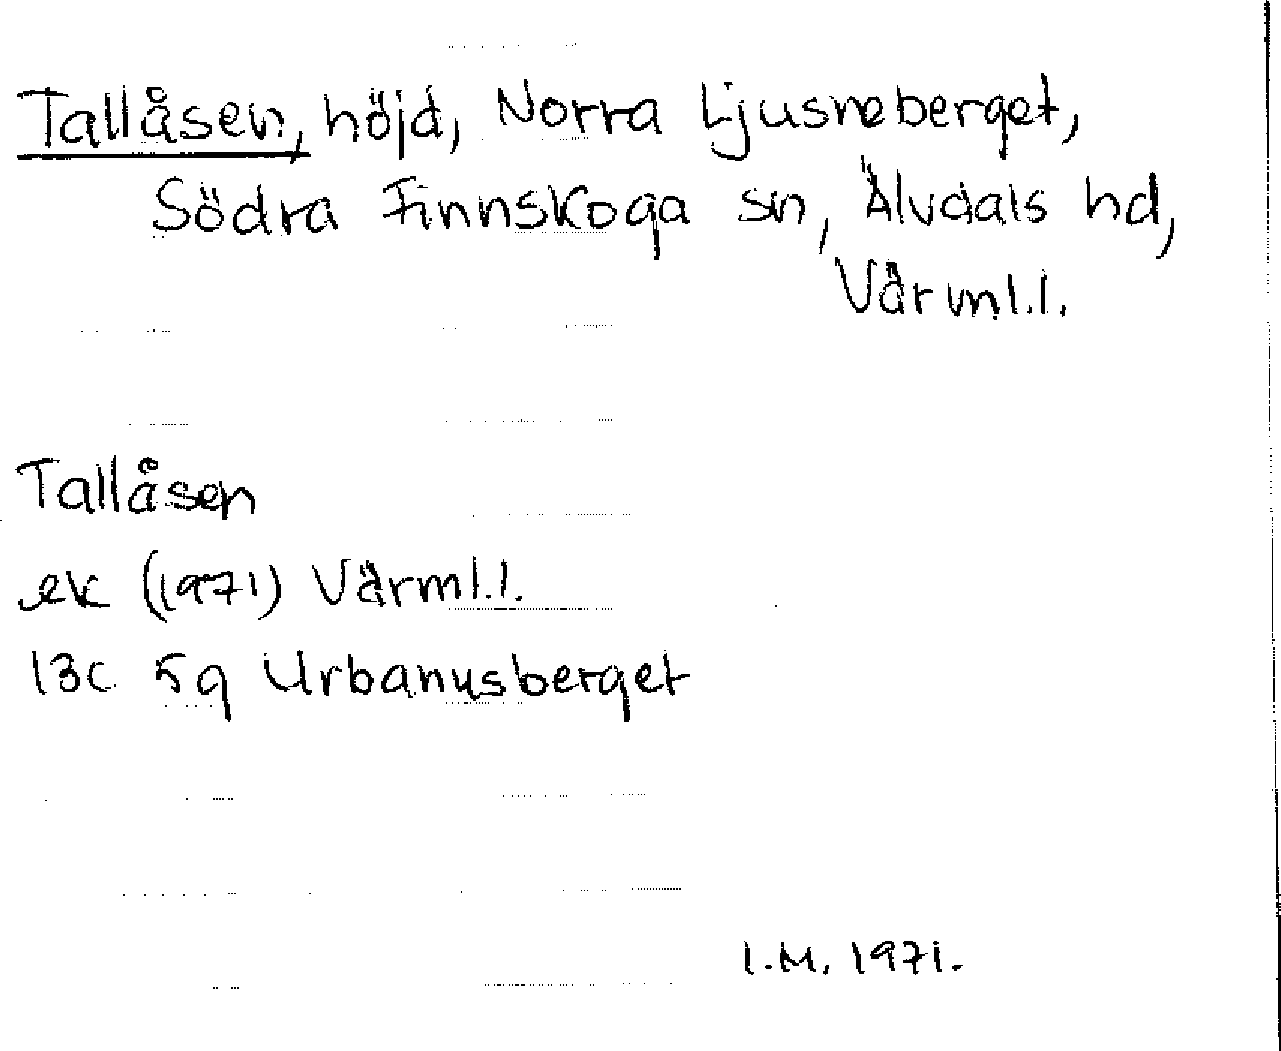 Tallåsen, höjd, Norra Ljusneberget,
Södra Finnskoga sn, Älvdals hd,
Värml.l.
Tallåsen
ek (1971) Värml.l.
13c 5g Urbanusberget
I.M. 1971.